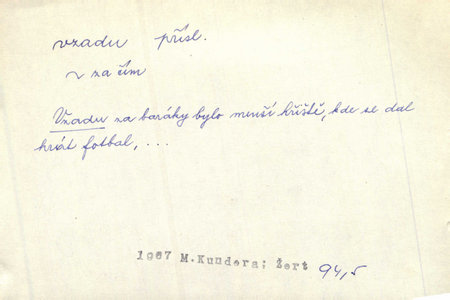 vzadu přísl.
~ za čím
Vzadu za baráky bylo menší hřiště, kde se dal
hrát fotbal, ...
1967 M.Kundera; Žert 94,5